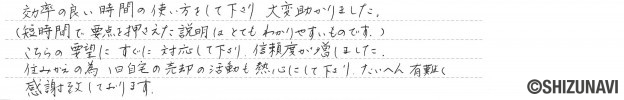 効率の良い時間の使い方をして下さり 大変助かりました。
(短時間で要点を押さえた説明はとてもわかりやすいものです。)
こちらの要望にすぐに対応して下さり、信頼度が増しました。
住みかえの為、旧自宅の売却の活動も熱心にして下さり、たいへん有難く
感謝致しております。
©SHIZUNAVI